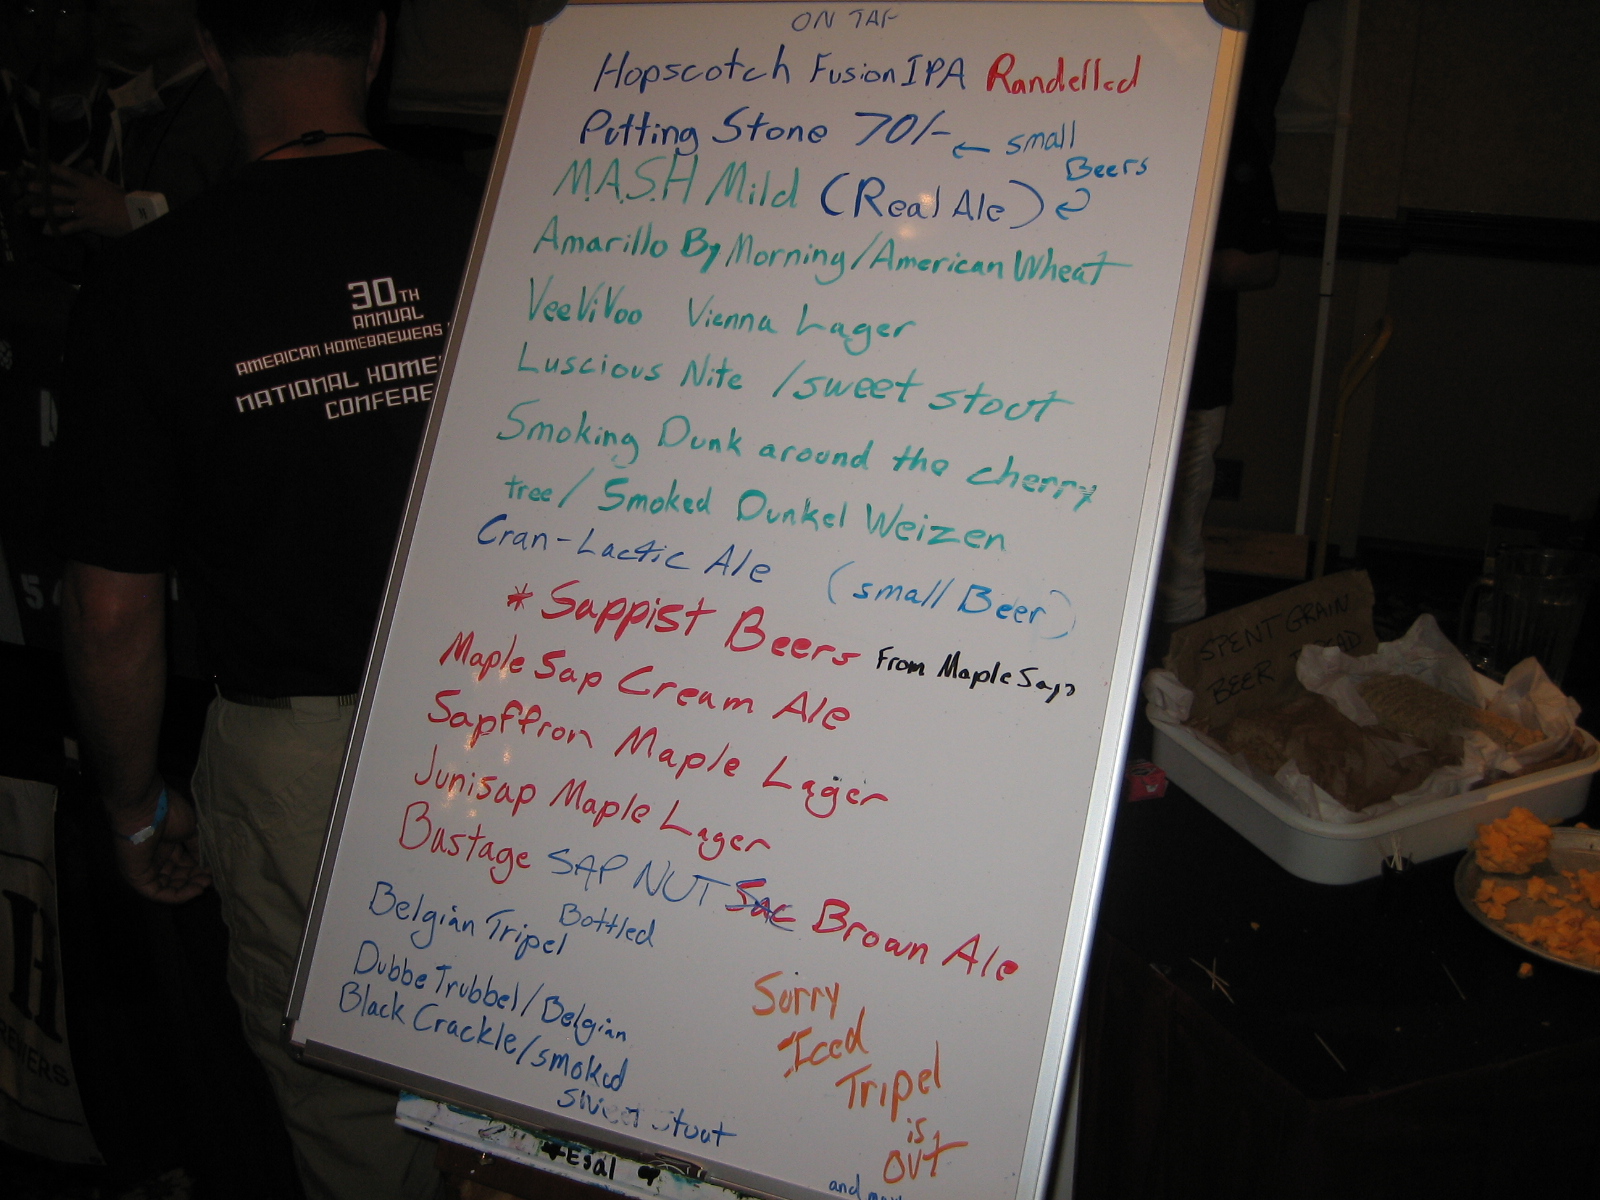 ON TAP
Hopscotch Fusion IPA Randelled
Putting Stone 70/- ← small
Beers
M.A.S.H Mild (Real Ale)
Amarillo By Morning/American Wheat
VeeViVoo Vienna Lager
Luscious Nite /sweet stout
Smoking Dunk around the cherry
tree/ Smoked Dunkel Weizen
Cran-Lactic Ale (small Beer)
* Sappist Beers From Maple Saps
Maple Sap Cream Ale
Sapffron Maple Lager
Junisap Maple Lager
Bastage SAP NUT Sac Brown Ale
Bottled
Belgian Tripel
Dubbe Trubbel/Belgian
Black Crackle/smoked
sweet stout
Sorry
Iced
Tripel
is
OUT
and
Esal
30TH
ANNUAL
AMERICAN HOMEBREWERS
NATIONAL HOME
CONFERE
SPENT GRAIN
BEER